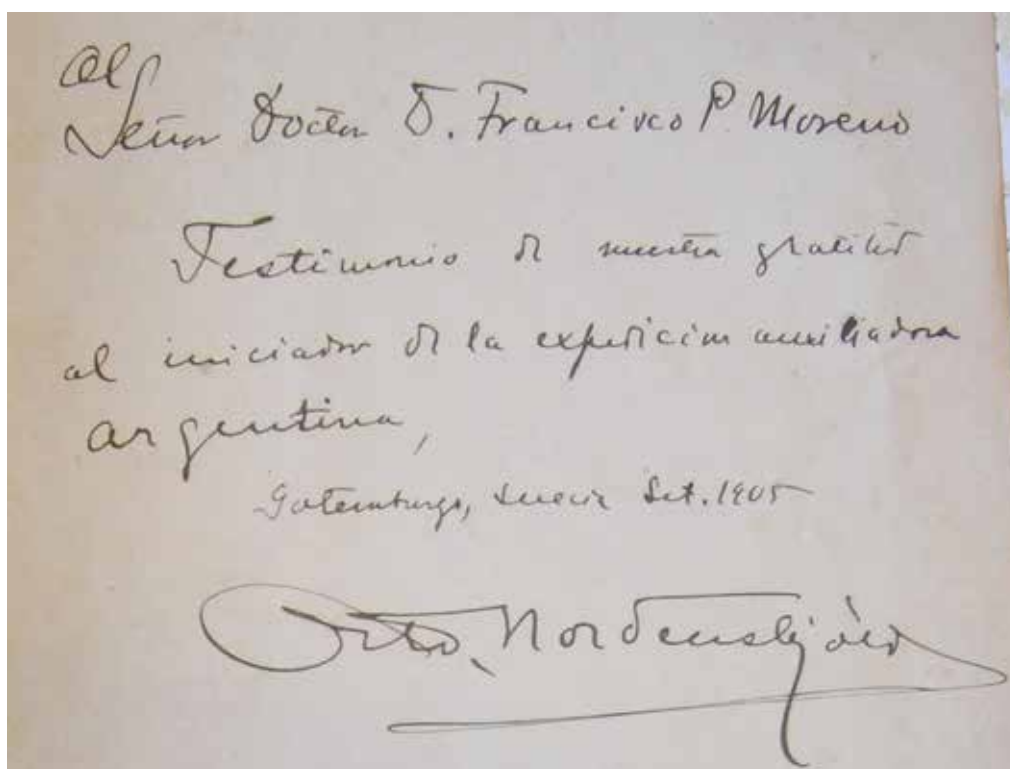 al
Señor Doctor D. Francisco P. Moreno
Testimonio de nuestra gratitud
al iniciador de la expedición auxiliadora
argentina,
Gotemburgo, Suecia Set. 1905
Otto Nordenskjöld